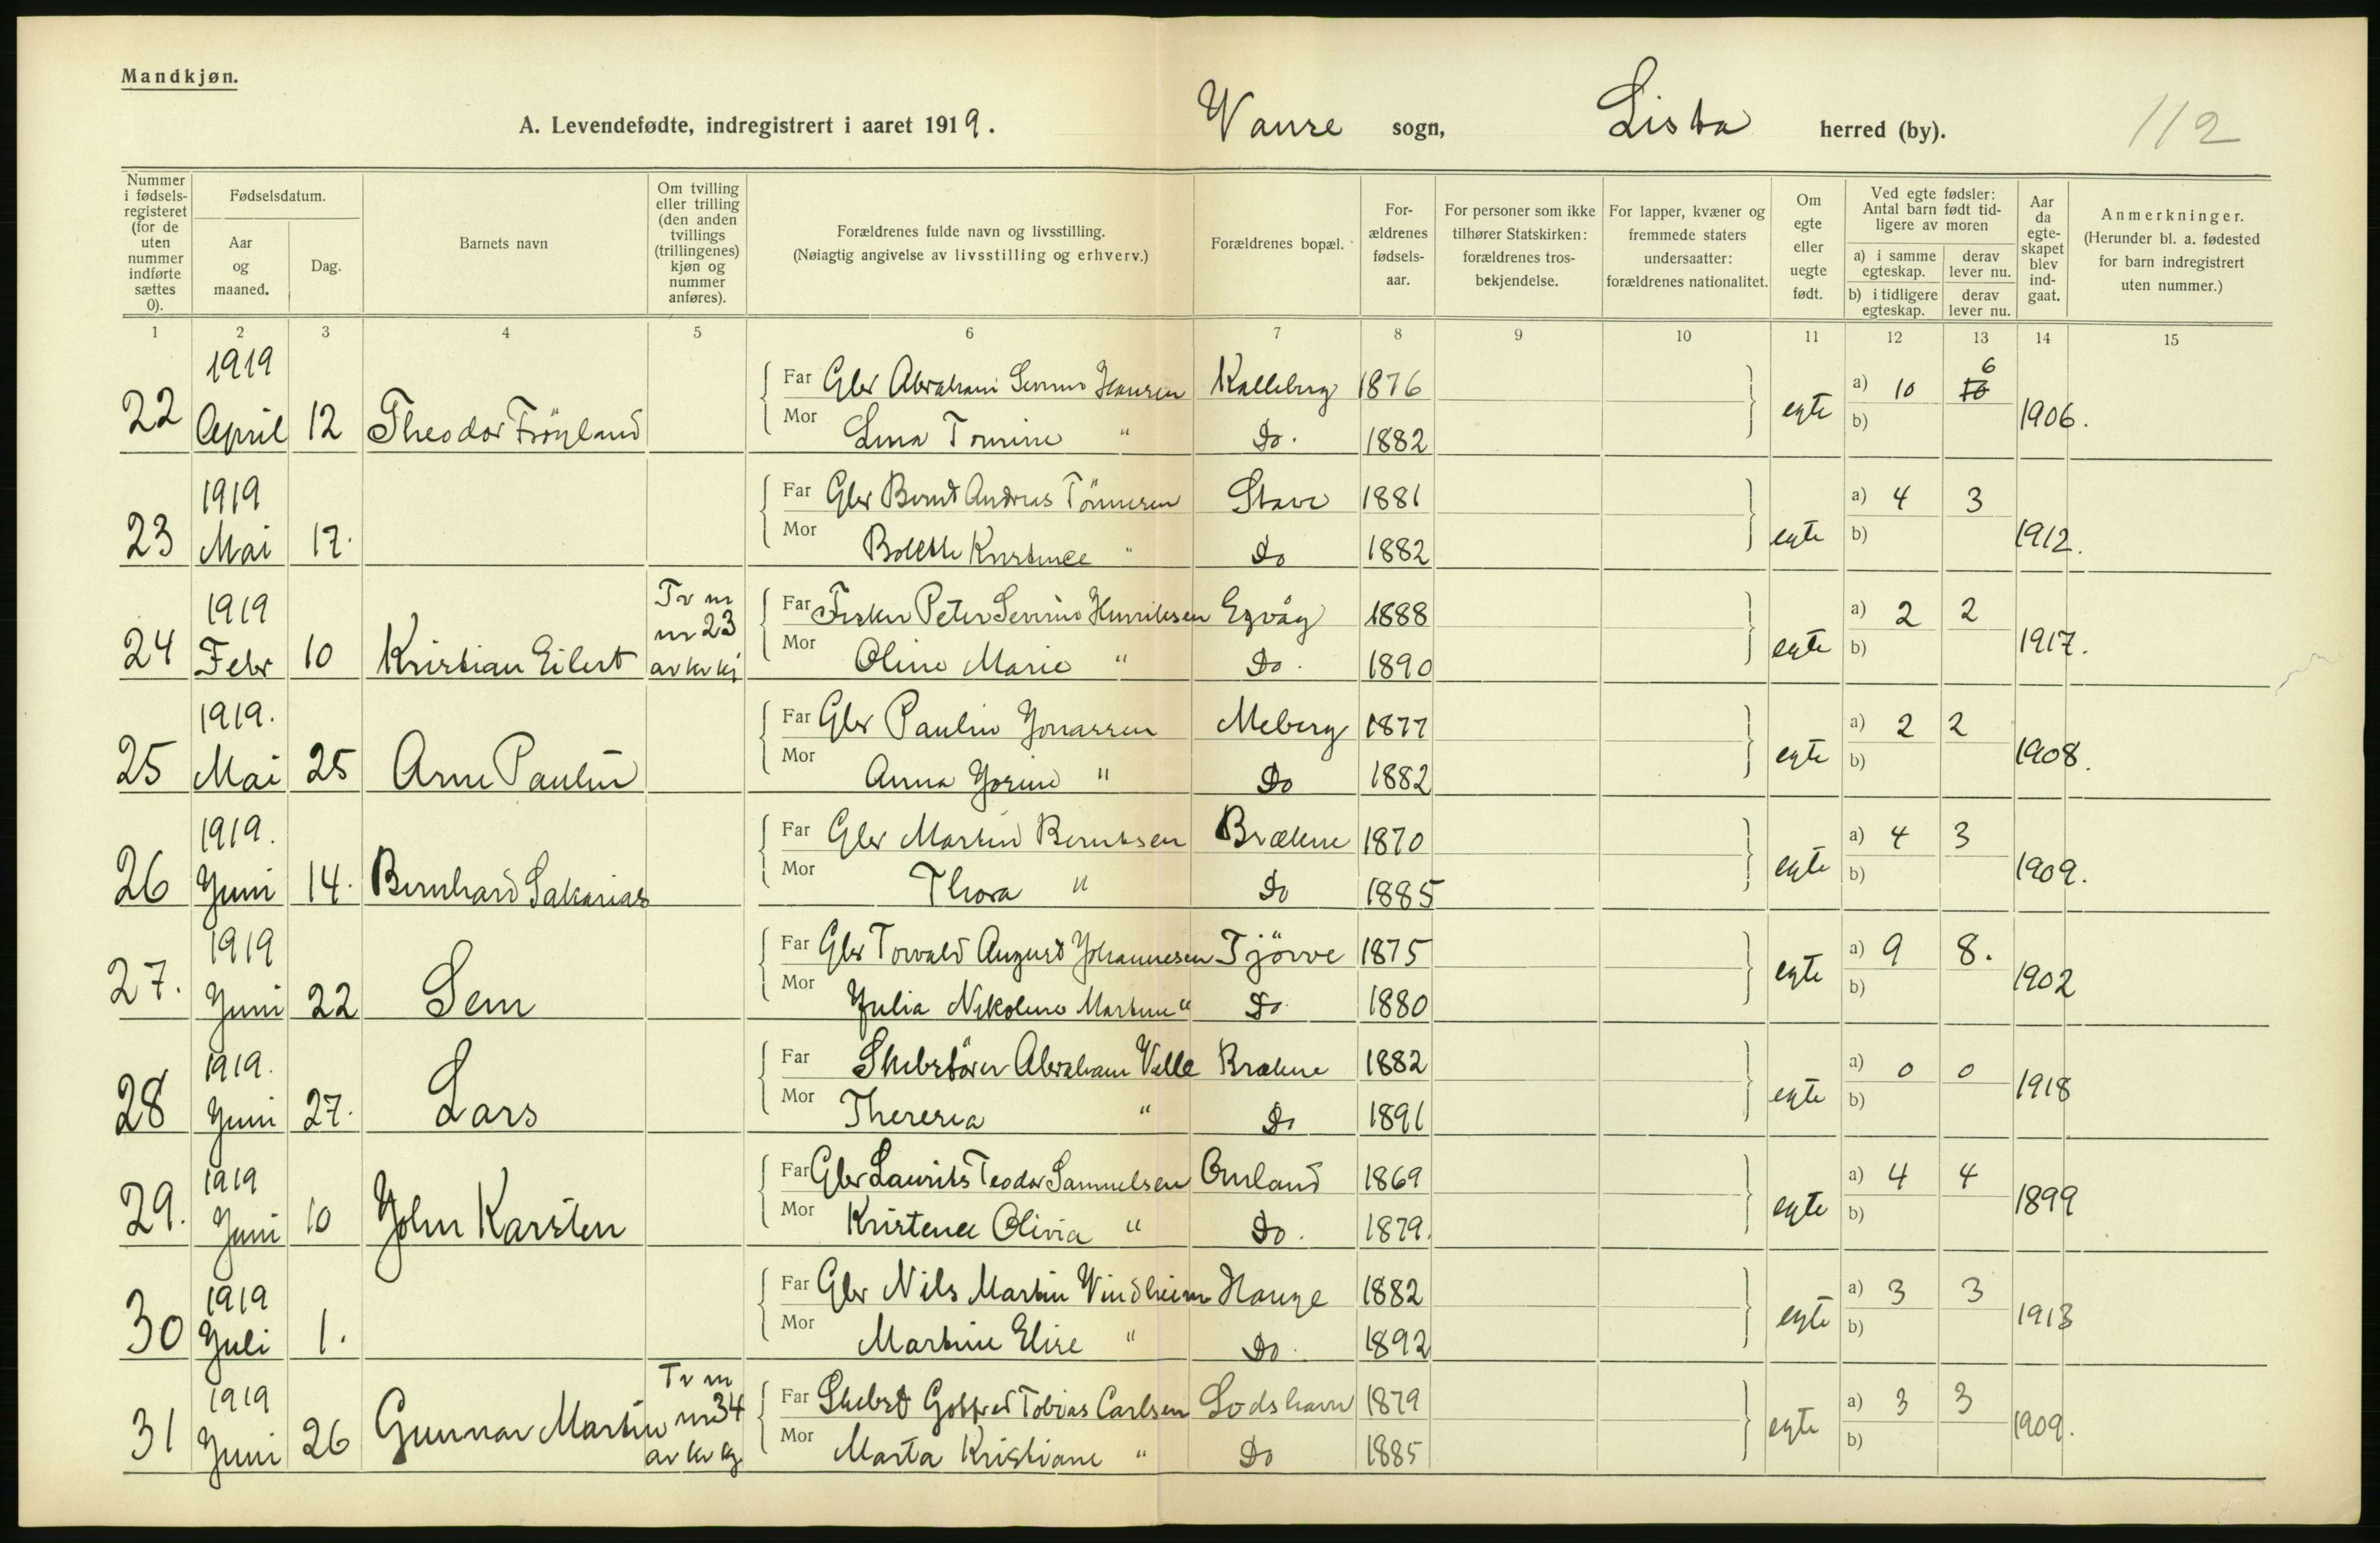 Mandkjøn.
A. Levendefødte, indregistrert i aaret 1919. Vanse sogn, Lista herred (by). 112
Nummer i fødselsregisteret (for de uten nummer indførte sættes 0).
Fødselsdatum.
Aar og maaned.
Dag.
Barnets navn
Om tvilling eller trilling (den anden tvillings (trillingenes) kjøn og nummer anføres).
Forældrenes fulde navn og livsstilling.
(Nøiagtig angivelse av livsstilling og erhverv.)
Forældrenes bopæl.
Forældrenes fødselsaar.
For personer som ikke tilhører Statskirken: forældrenes trosbekjendelse.
For lapper, kvæner og fremmede staters undersaatter: forældrenes nationalitet.
Om egte eller uegte født.
Ved egte fødsler: Antal barn født tidligere av moren
a) i samme egteskap. derav lever nu.
b) i tidligere egteskap. derav lever nu.
Aar da egteskapet blev indgaat.
Anmerkninger.
(Herunder bl. a. fødested for barn indregistrert uten nummer.)
1 2 3 4 5 6 7 8 9 10 11 12 13 14 15
22 1919 April 12 Theodor Frøyland Far Gbr Abraham Severin Hansen Kalleberg 1876 egte a) 10 10 6 1906.
Mor Lina Tomine " Do. 1882 b)
23 1919 Mai 17. Far Gbr Bernt Andreas Tönnesen Stave 1881 egte a) 4 3 1912.
Mor Bolette Kristence " Do 1882 b)
24 1919 Febr 10 Kristian Eilert Tv m nr 23 av kv kj Far Fisker Peter Severin Henriksen Egvåg 1888 egte a) 2 2 1917.
Mor Oline Marie " Do. 1890 b)
25 1919. Mai 25 Arne Paulin Far Gbr Paulin Jonassen Meberg 1877 egte a) 2 2 1908.
Mor Anna Jorine " Do 1882 b)
26 1919. Juni 14. Bernhard Sakarias Far Gbr Martin Berntsen Brækne 1870 egte a) 4 3 1909.
Mor Thora " Do 1885 b)
27. 1919 Juni 22 Sem Far Gbr Torvald August Johannesen Tjörve 1875 egte a) 9 8. 1902
Mor Julia Nikoline Martine " Do 1880 b)
28 1919. Juni 27. Lars Far Abraham Valle Brækne 1882 egte a) 0 0 1918
Mor Theresia " Do 1891 b)
29. 1919 Juni 10 John Karsten Far Gbr Laurits Teodor Samuelsen Omland 1869 egte a) 4 4 1899
Mor Kristence Olivia " Do. 1879. b)
30 1919 Juli 1. Far Gbr Nils Martin Vindheim Hauge 1882 egte a) 3 3 1913
Mor Martine Elise " Do. 1892 b)
31 1919 Juni 26 Gunnar Martin Tv m nr 34 av kv kj Far Gotfred Tobias Carlsen Lodshavn 1879 egte a) 3 3 1909.
Mor Marta Kristiane " Do 1885 b)